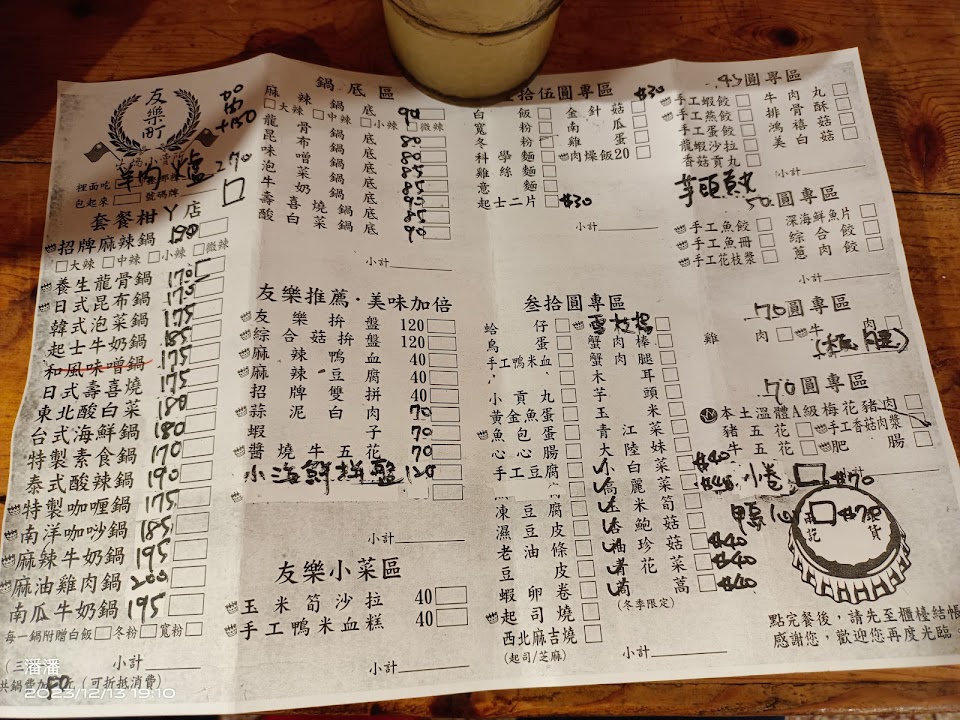 友樂町
裡面吃
包起來
號碼牌
羊肉爐 270
套餐柑ㄚ店
招牌麻辣鍋 190
大辣 中辣 小辣 微辣
養生龍骨鍋 170
日式昆布鍋 170
韓式泡菜鍋 175
起士牛奶鍋 185
和風味噌鍋 175
日式壽喜燒 175
東北酸白菜 180
台式海鮮鍋 180
特製素食鍋 170
泰式酸辣鍋 190
特製咖哩鍋 175
南洋咖吵鍋 185
麻辣牛奶鍋 195
麻油雞肉鍋 200
南瓜牛奶鍋 195
每一鍋附贈白飯 冬粉 寬粉
小計
共鍋費加50元 (可折抵消費)
鍋底區
麻辣鍋底 90
大辣 中辣 小辣 微辣
龍骨鍋底
昆布鍋底
味噌鍋底
泡菜鍋底
牛奶鍋底
壽喜燒鍋底
酸白菜鍋底 90
小計
友樂推薦·美味加倍
友樂拚盤 120
綜合菇拚盤 120
麻辣鴨血 40
麻辣豆腐 40
招牌雙拼 40
蒜泥白肉 70
蝦子 70
醬燒牛五花 70
小海鮮拼盤 120
小計
友樂小菜區
玉米筍沙拉 40
手工鴨米血糕 40
小計
拾伍圓專區
白飯
寬粉
冬粉
科學麵
雞絲麵
意麵
起士二片 $30
金針菇 $30
南瓜
雞蛋
肉燥飯20
小計
叁拾圓專區
蛤仔
鳥蛋
手工鴨米血
小貢丸
黃金蛋
魚包蛋
心心腸
手工豆腐
凍豆腐
濕豆皮
老油條
豆皮
蝦卵卷
起司燒
西北麻吉燒
(起司/芝麻)
蟹肉棒
蟹肉腿
木耳
芋頭
玉米
青江菜
大陸妹
小白菜
高麗菜
玉米筍
杏鮑菇
油珍菇
(冬季限定)
小計
45圓專區
手工蝦餃
手工燕餃
手工蛋餃
龍蝦沙拉
香菇貢丸
牛肉丸
排骨酥
鴻禧菇
美白菇
小計
芋頭貢丸
50圓專區
手工魚餃
手工魚冊
手工花枝漿
深海鮮魚片
綜合餃
蔥肉餃
小計
70圓專區
雞肉
牛肉
70圓專區
本土溫體A級梅花豬肉
豬五花
牛五花
手工香菇肉漿
肥腸
小計
小卷 $70
鴨心 $70
點完餐後，請先至櫃檯結帳
感謝您，歡迎您再度光臨。
潘潘
2023/12/13 19:10